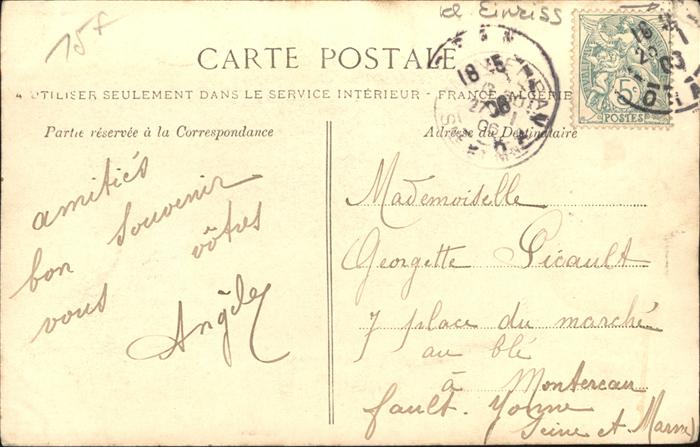 15f
el Einriss
CARTE POSTALE
A UTILISER SEULEMENT DANS LE SERVICE INTÉRIEUR - FRANCE-ALGÉRIE
Partie réservée à la Correspondance
Adresse du Destinataire
amitiés
bon souvenir
vous vôtres
Angèle
Mademoiselle
Georgette Picault
7 place du marché
au blé
à Montereau
fault. Yonne
Seine et Marne
5c
POSTES
ORAN
18
06